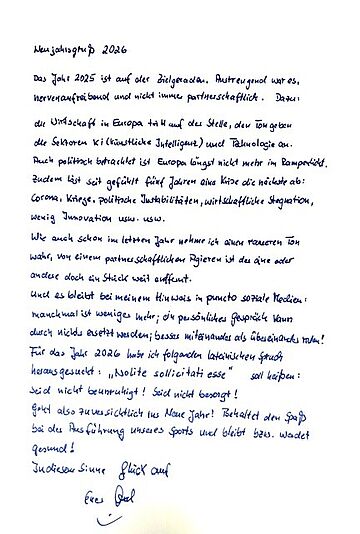 Neujahrsgruß 2026
Das Jahr 2025 ist auf der Zielgeraden. Anstrengend war es,
nervenaufreibend und nicht immer partnerschaftlich. Dazu:
die Wirtschaft in Europa tritt auf der Stelle, den Ton geben
die Sektoren KI (künstliche Intelligenz) und Technologie an.
Auch politisch betrachtet ist Europa längst nicht mehr im Rampenlicht.
Zudem löst seit gefühlt fünf Jahren eine Krise die nächste ab:
Corona, Kriege, politische Instabilitäten, wirtschaftliche Stagnation,
wenig Innovation usw. usw.
Wie auch schon im letzten Jahr nehme ich einen raueren Ton
wahr, von einem partnerschaftlichen Agieren ist der eine oder
andere doch ein Stück weit entfernt.
Und es bleibt bei meinem Hinweis in puncto soziale Medien:
manchmal ist weniger mehr; ein persönliches Gespräch kann
durch nichts ersetzt werden; besser miteinander als übereinander reden!
Für das Jahr 2026 habe ich folgenden lateinischen Spruch
herausgesucht: „Nolite sollicitati esse" soll heißen:
Seid nicht beunruhigt! Seid nicht besorgt!
Geht also zuversichtlich ins Neue Jahr! Behaltet den Spaß
bei der Ausführung unseres Sports und bleibt bzw. werdet
gesund!
In diesem Sinne Glück auf
Euer